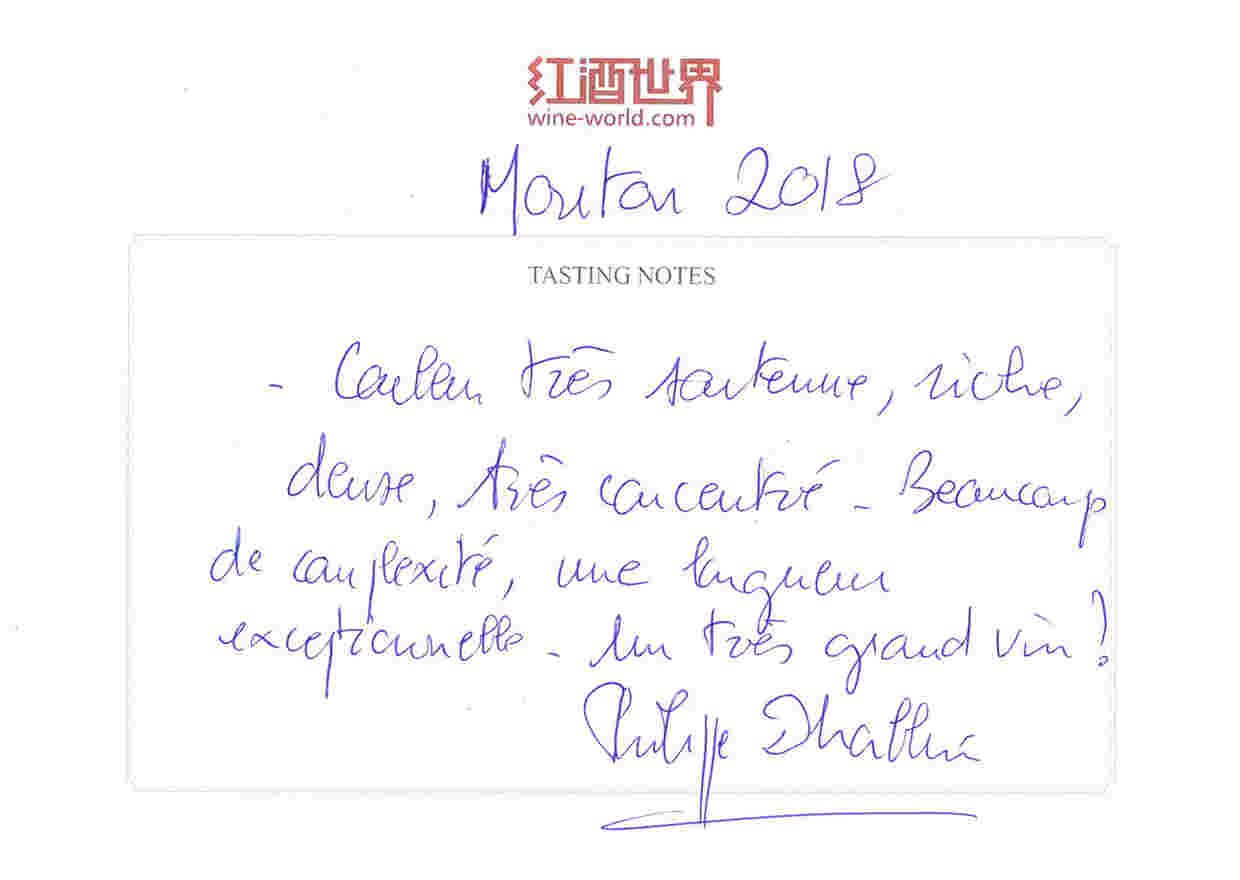 红酒世界
wine-world.com
Mouton 2018
TASTING NOTES
- Couleur très soutenue, riche,
dense, très concentré - Beaucoup
de complexité, une longueur
exceptionnelle - Un très grand vin !
Philippe Dhalluin